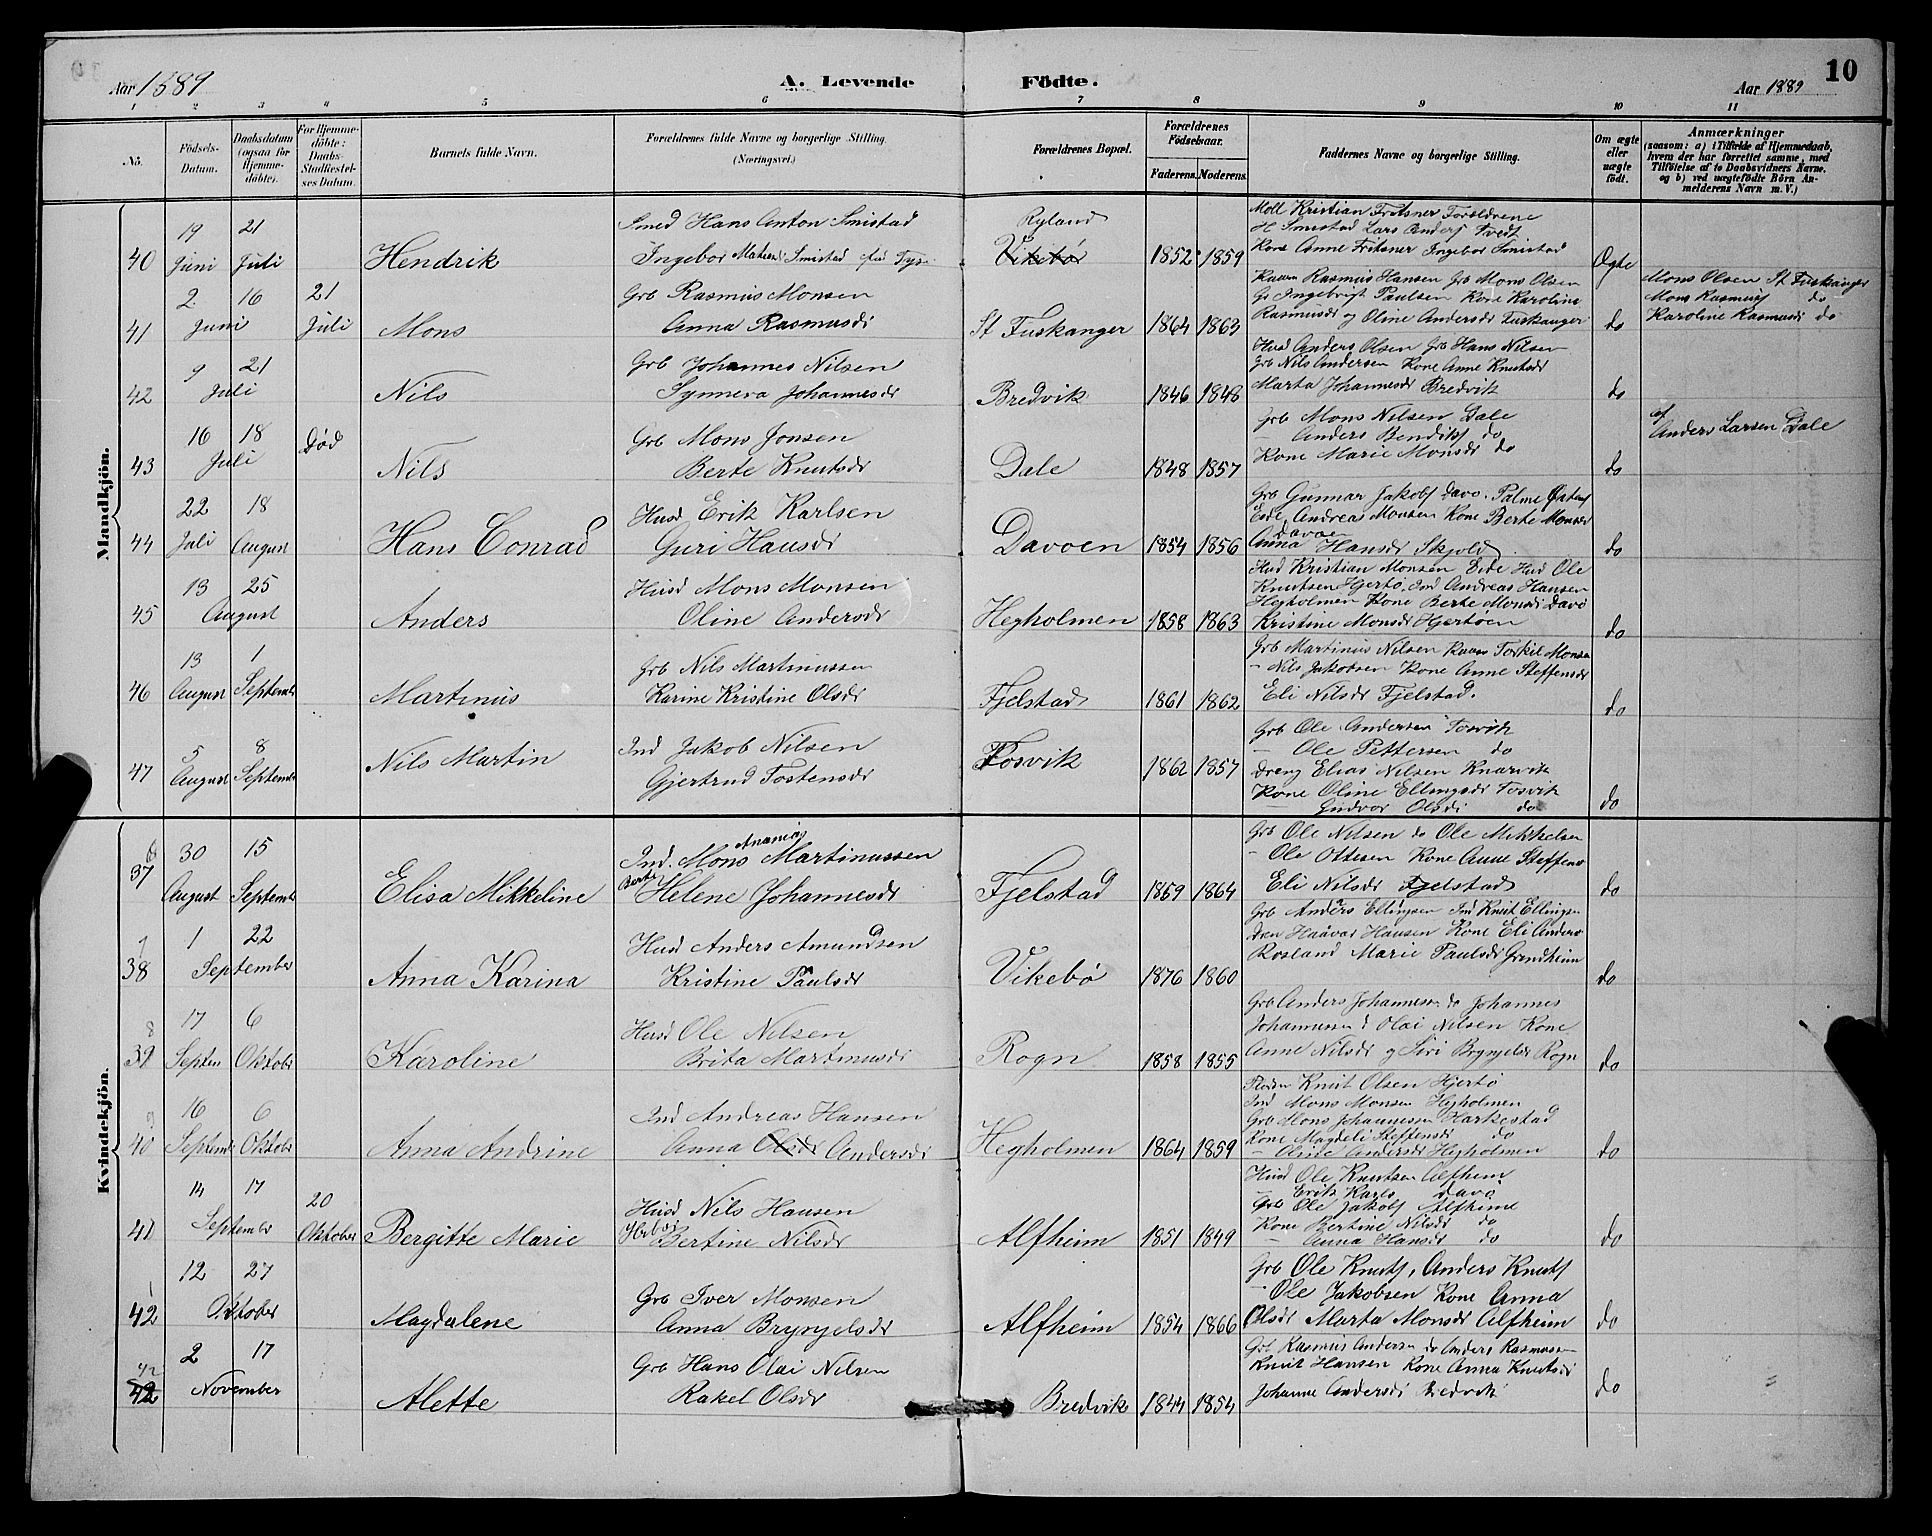 Aar 1889
A. Levende Födte.
Aar 1889
10
1 2 3 4 5 6 7 8 9 10 11
No.
Födsels-Datum.
Daabsdatum (ogsaa for Hjemme-döbte).
For Hjemme-döbte: Daabs-Stadfæstel-ses Datum.
Barnets fulde Navn.
Forældrenes fulde Navne og borgerlige Stilling. (Næringsvei.)
Forældrenes Bopæl.
Forældrenes Födselsaar.
Faderens. Moderens.
Faddernes Navne og borgerlige Stilling.
Om ægte eller uægte födt.
Anmærkninger (saasom: a) i Tilfælde af Hjemmedaab, hvem der har forrettet samme, med Tilföielse af to Daabsvidners Navne. og b) ved uægtefödte Börn An-melderens Navn m. V.)
Mandkjön.
40 19 Juni 21 Juli Hendrik
Smed Hans Anton Smistad
Ingebor Smistad
Ryland
Vikebø
1852 1859
Kristian Fritsner Forældrene
H Smistad Lars Anders Tvedt
Kone Anne Fritsner Ingebor Smistad
Ægte
41 2 Juni 16 21 Juli Mons
Grb Rasmus Monsen
Anna Rasmusdr
St Fuskanger 1864 1863
Rasmus Hansen Grb Mons Olsen
Gr Ingebrigt Paulsen Kone Karoline
Rasmusdr og Oline Andersdr Fuskanger
do
Mons Olsen St Fuskanger
Mons Rasmus do
Karoline Rasmusdr do
42 9 21 Juli Nils
Grb Johannes Nilsen
Synneva Johannesdr
Bredvik 1846 1848
Husd Anders Olsen Grb Hans Nilsen
Grb Nils Andersen Kone Anne Knutsdr
Marta Johannesdr Bredvik
do
43 16 18 Juli Død Nils
Grb Mons Jonsen
Berte Knutsdr
Dale 1848 1857
Grb Mons Nilsen Dale
- Anders Bendiks do
Kone Marie Monsdr do
do
af
Anders Larsen Dale
44 22 Juli 18 August Hans Conrad
Husd Erik Karlsen
Guri Hansdr
Davøen 1854 1856
Grb Gunnar Jakobs Davø. Palme
Eide, Andreas Monsen Kone Berte Monsdr
Davøen
Anna Hansdr Skjold
do
45 13 25 August Anders
Husd Mons Monsen
Oline Andersdr
Hegholmen 1858 1863
Husd Kristian Monsen Eide Husd Ole
Knutsen Hjertø, Ind Andreas Hansen
Hegholmen Kone Berte Monsdr Davø
Kristine Monsdr Hjertøen
do
46 13 August 1 September Martinus
Grb Nils Martinussen
Karine Kristine Olsdr
Fjelstad 1861 1862
Grb Martinus Nilsen Torkil Monsen
- Nils Jakobsen Kone Anne Steffensdr
Eli Nilsdr Fjelstad.
do
47 5 August 8 September Nils Martin
Ind Jakob Nilsen
Gjertrud Tostensdr
Tosvik 1862 1857
Grb Ole Andersen Tosvik
- Ole Pettersen do
Dreng Elias Nilsen Knarvik
Kone Oline Ellingsdr Tosvik
- Gudvor Olsdr do
do
Kvindekjön.
6
37 30 August 15 September Elisa Mikkeline
Ananias
Ind. Mons Martinussen
Berte Helene Johannesdr
Fjelstad 1859 1864
Grb Ole Nilsen do Ole Mikkelsen
- Ole Ottesen Kone Anne Steffens
Eli Nilsdr Fjelstad
do
7
38 1 22 September Anna Karina
Husd Anders Amundsen
Kristine Paulsdr
Vikebø 1876 1860
Grb Anders Ellingsen Ind Knut Ellingsen
Haavar Hansen Kone Eli Anders
Rosland Marie Paulsdr Grindheim
do
8
39 17 Septem 6 Oktober Karoline
Husd Ole Nilsen
Brita Martinusdr
Rogn 1858 1855
Grb Anders Johannessen do Johannes
Johannessen d Olai Nilsen Kone
Anne Nilsdr og Siri Brynjelsdr Rogn
do
9
40 16 Septembr 6 Oktober Anna Andrine
Ind Andreas Hansen
Anna Olsdr Andersdr
Hegholmen 1864 1859
Knut Olsen Hjertø
Ind Mons Monsen Hegholmen
Grb Mons Johannesen Harkestad
Kone Magdeli Steffensdr do
- Oline Andersdr Hegholmen
do
41 14 17 September 20 Oktober Bergitte Marie
Husd Nils Hansen
Bertine Nilsdr
Alfheim 1851 1849
Husd Ole Knutsen Alfheim
- Erik Karls Davø
Grb Ole Jakobs Alfheim
Kone Bertine Nilsdr do
- Anna Hansdr do
do
1
42 12 27 Oktober Magdalene
Grb Iver Monsen
Anna Brynjelsdr
Alfheim 1854 1866
Grb Ole Knuts, Anders Knuts
- Ole Jakobsen Kone Anna
Olsdr Marta Monsdr Alfheim
do
42 2 17 November Alette
Grb Hans Olai Nilsen
Rakel Olsdr
Bredvik 1844 1854
Grb Rasmus Andersen do Anders Rasmussen
Knut Hansen Kone Anna Knutsdr
Johanne Andersdr Bredvik
do